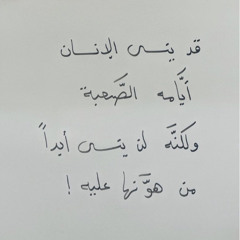 قد ينسى الإنسان
أيَّامه الصَّعبة
ولكنَّه لن ينسى أبداً
من هوَّنها عليه !